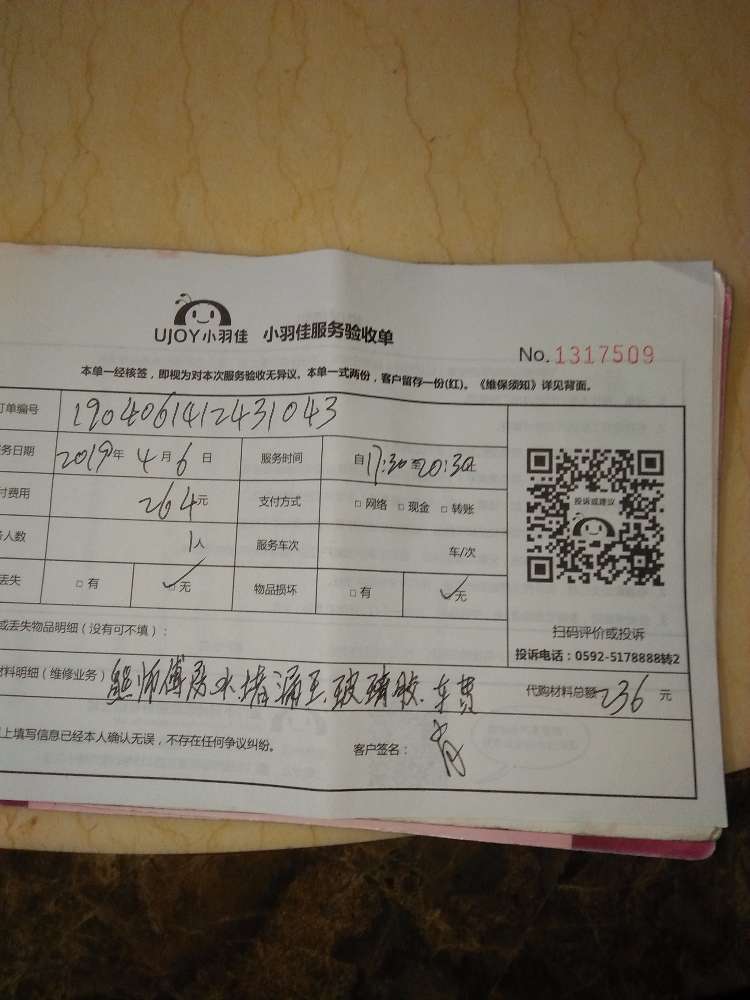 UJOY小羽佳 小羽佳服务验收单
No. 1317509
本单一经核签，即视为对本次服务验收无异议。本单一式两份，客户留存一份(红)。《维保须知》详见背面。
订单编号 1904061412431043
务日期 2019年 4月 6日 服务时间 自17:30至20:30止
付费用 264元 支付方式 □ 网络 □ 现金 □ 转账
务人数 1人 服务车次 车/次
丢失 □ 有 ✓ □ 无 物品损坏 □ 有 ✓ □ 无
投诉或建议
扫码评价或投诉
投诉电话：0592-5178888转2
或丢失物品明细（没有可不填）：
材料明细（维修业务） 熊师傅防水堵漏王.玻璃胶.车费 代购材料总额 236 元
上填写信息已经本人确认无误，不存在任何争议纠纷。 客户签名：